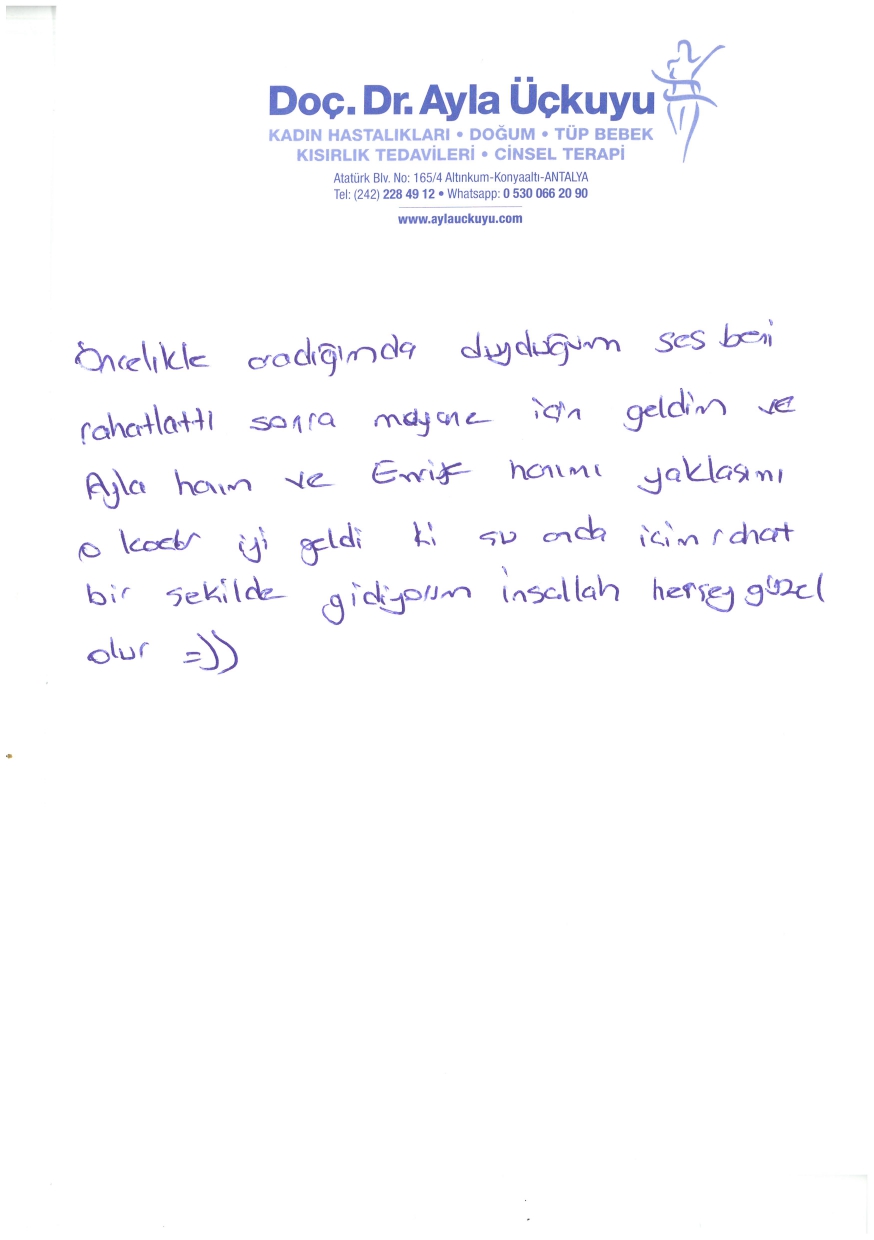 Doç. Dr. Ayla Üçkuyu
KADIN HASTALIKLARI • DOĞUM • TÜP BEBEK
KISIRLIK TEDAVİLERİ • CİNSEL TERAPİ
Atatürk Blv. No: 165/4 Altınkum-Konyaaltı-ANTALYA
Tel: (242) 228 49 12 • Whatsapp: 0 530 066 20 90
www.aylauckuyu.com
Öncelikle aradığımda duyduğum ses beni
rahatlattı sonra mayene için geldim ve
Ayla hanım ve hanımı yaklasımı
o kadar iyi geldi ki su anda icim rahat
bir sekilde gidiyorum insallah hersey güzel
olur =))